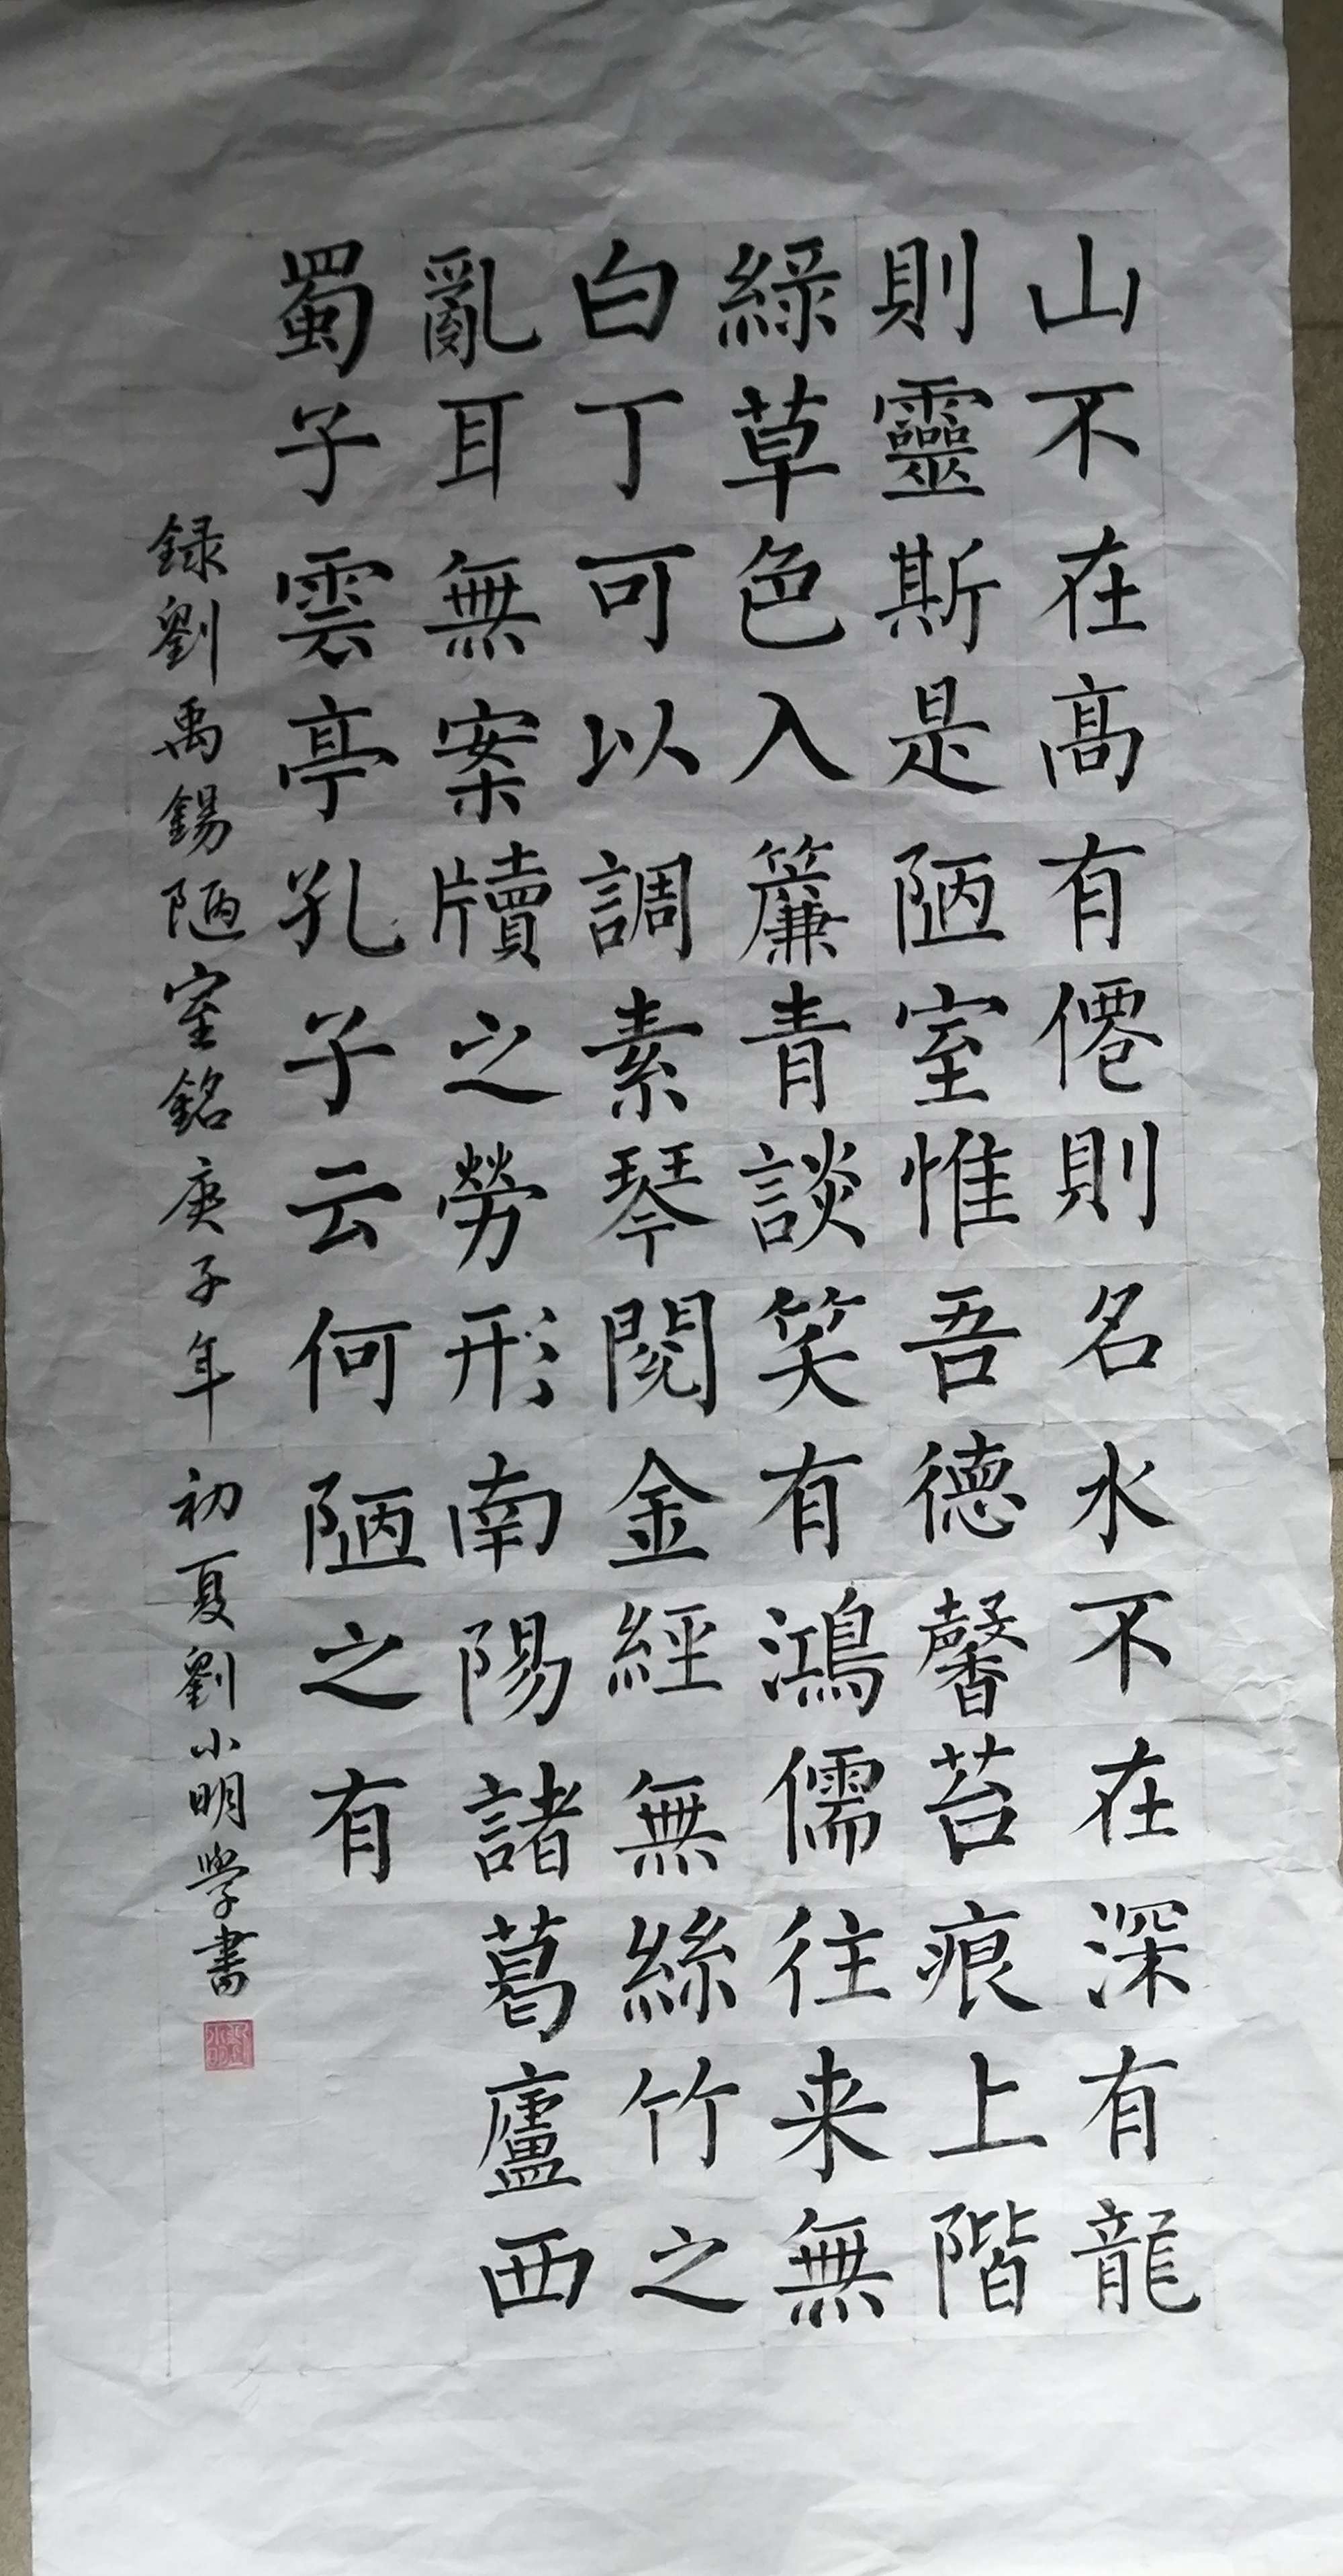 山不在高有僊則名水不在深有龍
則靈斯是陋室惟吾德馨苔痕上階
綠草色入簾青談笑有鴻儒往来無
白丁可以調素琴閱金經無絲竹之
亂耳無案牘之勞形南陽諸葛廬西
蜀子雲亭孔子云何陋之有
録劉禹錫陋室銘庚子年初夏劉小明學書